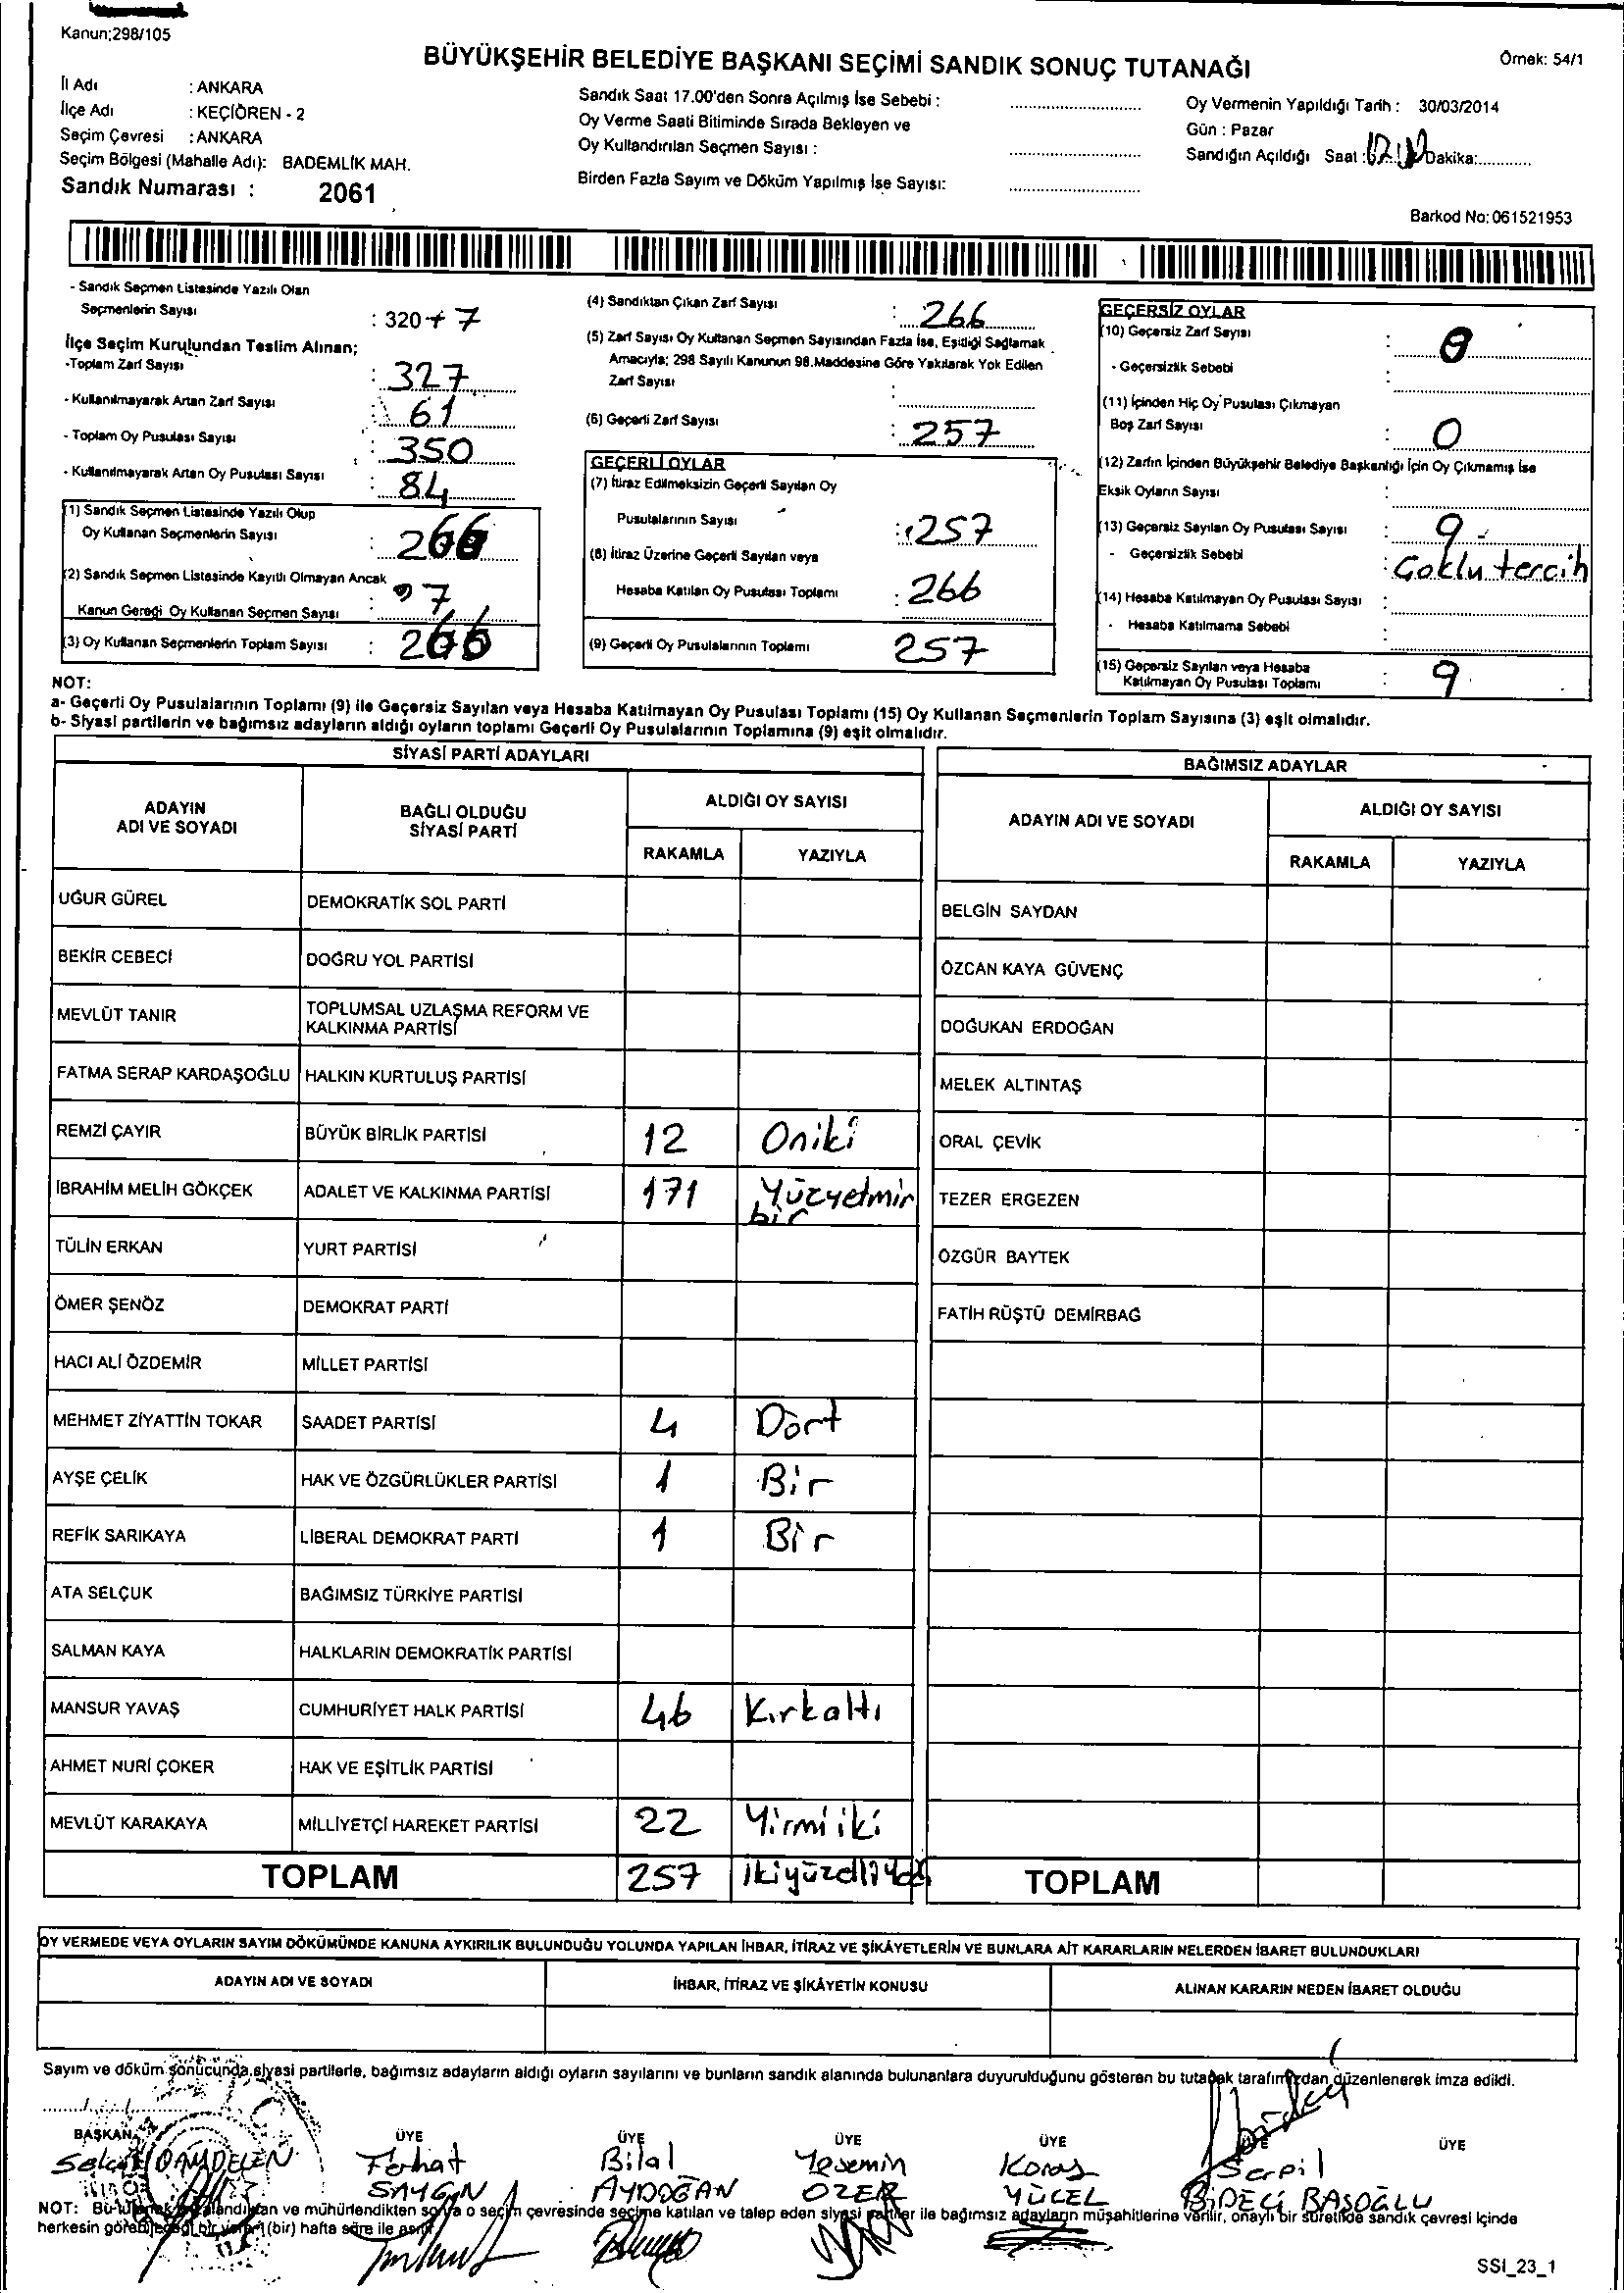 Kanun;298/105
BÜYÜKŞEHİR BELEDİYE BAŞKANI SEÇİMİ SANDIK SONUÇ TUTANAĞI
Örnek: 54/1
İl Adı : ANKARA
İlçe Adı : KEÇİÖREN - 2
Seçim Çevresi : ANKARA
Seçim Bölgesi (Mahalle Adı): BADEMLİK MAH.
Sandık Numarası : 2061
Sandık Saat 17.00'den Sonra Açılmış İse Sebebi :
Oy Verme Saati Bitiminde Sırada Bekleyen ve
Oy Kullandırılan Seçmen Sayısı :
Birden Fazla Sayım ve Döküm Yapılmış İse Sayısı:
Oy Vermenin Yapıldığı Tarih : 30/03/2014
Gün : Pazar
Sandığın Açıldığı Saat : Dakika:
Barkod No: 061521953
- Sandık Seçmen Listesinde Yazılı Olan
Seçmenlerin Sayısı : 320 + 7
İlçe Seçim Kurulundan Teslim Alınan;
-Toplam Zarf Sayısı : 327
- Kullanılmayarak Artan Zarf Sayısı : 61
- Toplam Oy Pusulası Sayısı : 350
- Kullanılmayarak Artan Oy Pusulası Sayısı : 84
(1) Sandık Seçmen Listesinde Yazılı Olup
Oy Kullanan Seçmenlerin Sayısı : 266
(2) Sandık Seçmen Listesinde Kayıtlı Olmayan Ancak
Kanun Gereği Oy Kullanan Seçmen Sayısı : 7
(3) Oy Kullanan Seçmenlerin Toplam Sayısı : 266
(4) Sandıktan Çıkan Zarf Sayısı : 266
(5) Zarf Sayısı Oy Kullanan Seçmen Sayısından Fazla İse, Eşitliği Sağlamak
Amacıyla; 298 Sayılı Kanunun 98.Maddesine Göre Yakılarak Yok Edilen
Zarf Sayısı :
(6) Geçerli Zarf Sayısı : 257
GEÇERLİ OYLAR
(7) İtiraz Edilmeksizin Geçerli Sayılan Oy
Pusulalarının Sayısı : 257
(8) İtiraz Üzerine Geçerli Sayılan veya
Hesaba Katılan Oy Pusulası Toplamı : 266
(9) Geçerli Oy Pusulalarının Toplamı 257
GEÇERSİZ OYLAR
(10) Geçersiz Zarf Sayısı : 0
- Geçersizlik Sebebi :
(11) İçinden Hiç Oy Pusulası Çıkmayan
Boş Zarf Sayısı : 0
(12) Zarfın İçinden Büyükşehir Belediye Başkanlığı İçin Oy Çıkmamış İse
Eksik Oyların Sayısı :
(13) Geçersiz Sayılan Oy Pusulası Sayısı : 9
- Geçersizlik Sebebi : Çoklu tercih
(14) Hesaba Katılmayan Oy Pusulası Sayısı :
- Hesaba Katılmama Sebebi :
(15) Geçersiz Sayılan veya Hesaba
Katılmayan Oy Pusulası Toplamı : 9
NOT:
a- Geçerli Oy Pusulalarının Toplamı (9) ile Geçersiz Sayılan veya Hesaba Katılmayan Oy Pusulası Toplamı (15) Oy Kullanan Seçmenlerin Toplam Sayısına (3) eşit olmalıdır.
b- Siyasi partilerin ve bağımsız adayların aldığı oyların toplamı Geçerli Oy Pusulalarının Toplamına (9) eşit olmalıdır.
SİYASİ PARTİ ADAYLARI
ADAYIN ADI VE SOYADI
BAĞLI OLDUĞU SİYASİ PARTİ
ALDIĞI OY SAYISI
RAKAMLA YAZIYLA
UĞUR GÜREL DEMOKRATİK SOL PARTİ
BEKİR CEBECİ DOĞRU YOL PARTİSİ
MEVLÜT TANIR TOPLUMSAL UZLAŞMA REFORM VE KALKINMA PARTİSİ
FATMA SERAP KARDAŞOĞLU HALKIN KURTULUŞ PARTİSİ
REMZİ ÇAYIR BÜYÜK BİRLİK PARTİSİ 12 Oniki
İBRAHİM MELİH GÖKÇEK ADALET VE KALKINMA PARTİSİ 171 Yüzyetmiş bir
TÜLİN ERKAN YURT PARTİSİ
ÖMER ŞENÖZ DEMOKRAT PARTİ
HACI ALİ ÖZDEMİR MİLLET PARTİSİ
MEHMET ZİYATTİN TOKAR SAADET PARTİSİ 4 Dört
AYŞE ÇELİK HAK VE ÖZGÜRLÜKLER PARTİSİ 1 Bir
REFİK SARIKAYA LİBERAL DEMOKRAT PARTİ 1 Bir
ATA SELÇUK BAĞIMSIZ TÜRKİYE PARTİSİ
SALMAN KAYA HALKLARIN DEMOKRATİK PARTİSİ
MANSUR YAVAŞ CUMHURİYET HALK PARTİSİ 46 Kırkaltı
AHMET NURİ ÇOKER HAK VE EŞİTLİK PARTİSİ
MEVLÜT KARAKAYA MİLLİYETÇİ HAREKET PARTİSİ 22 Yirmiiki
TOPLAM 257 İkiyüzelliyedi
BAĞIMSIZ ADAYLAR
ADAYIN ADI VE SOYADI
ALDIĞI OY SAYISI
RAKAMLA YAZIYLA
BELGİN SAYDAN
ÖZCAN KAYA GÜVENÇ
DOĞUKAN ERDOĞAN
MELEK ALTINTAŞ
ORAL ÇEVİK
TEZER ERGEZEN
ÖZGÜR BAYTEK
FATİH RÜŞTÜ DEMİRBAĞ
TOPLAM
OY VERMEDE VEYA OYLARIN SAYIM DÖKÜMÜNDE KANUNA AYKIRILIK BULUNDUĞU YOLUNDA YAPILAN İHBAR, İTİRAZ VE ŞİKÂYETLERİN VE BUNLARA AİT KARARLARIN NELERDEN İBARET BULUNDUKLARI
ADAYIN ADI VE SOYADI İHBAR, İTİRAZ VE ŞİKÂYETİN KONUSU ALINAN KARARIN NEDEN İBARET OLDUĞU
Sayım ve döküm sonucunda siyasi partilerle, bağımsız adayların aldığı oyların sayılarını ve bunların sandık alanında bulunanlara duyurulduğunu gösteren bu tutanak tarafımızdan düzenlenerek imza edildi.
BAŞKAN ÜYE ÜYE ÜYE ÜYE ÜYE ÜYE
Ferhat Bilal Yesemin Koray Serpil
SAYGIN AYDOĞAN ÖZER YÜCEL BİDECİ BAŞOĞLU
NOT: ve mühürlendikten sonra o seçim çevresinde seçime katılan ve talep eden siyasi partiler ile bağımsız adayların müşahitlerine verilir, onaylı bir suretide sandık çevresi içinde
herkesin görebileceği bir yere 1(bir) hafta süre ile asılır.
SSI_23_1